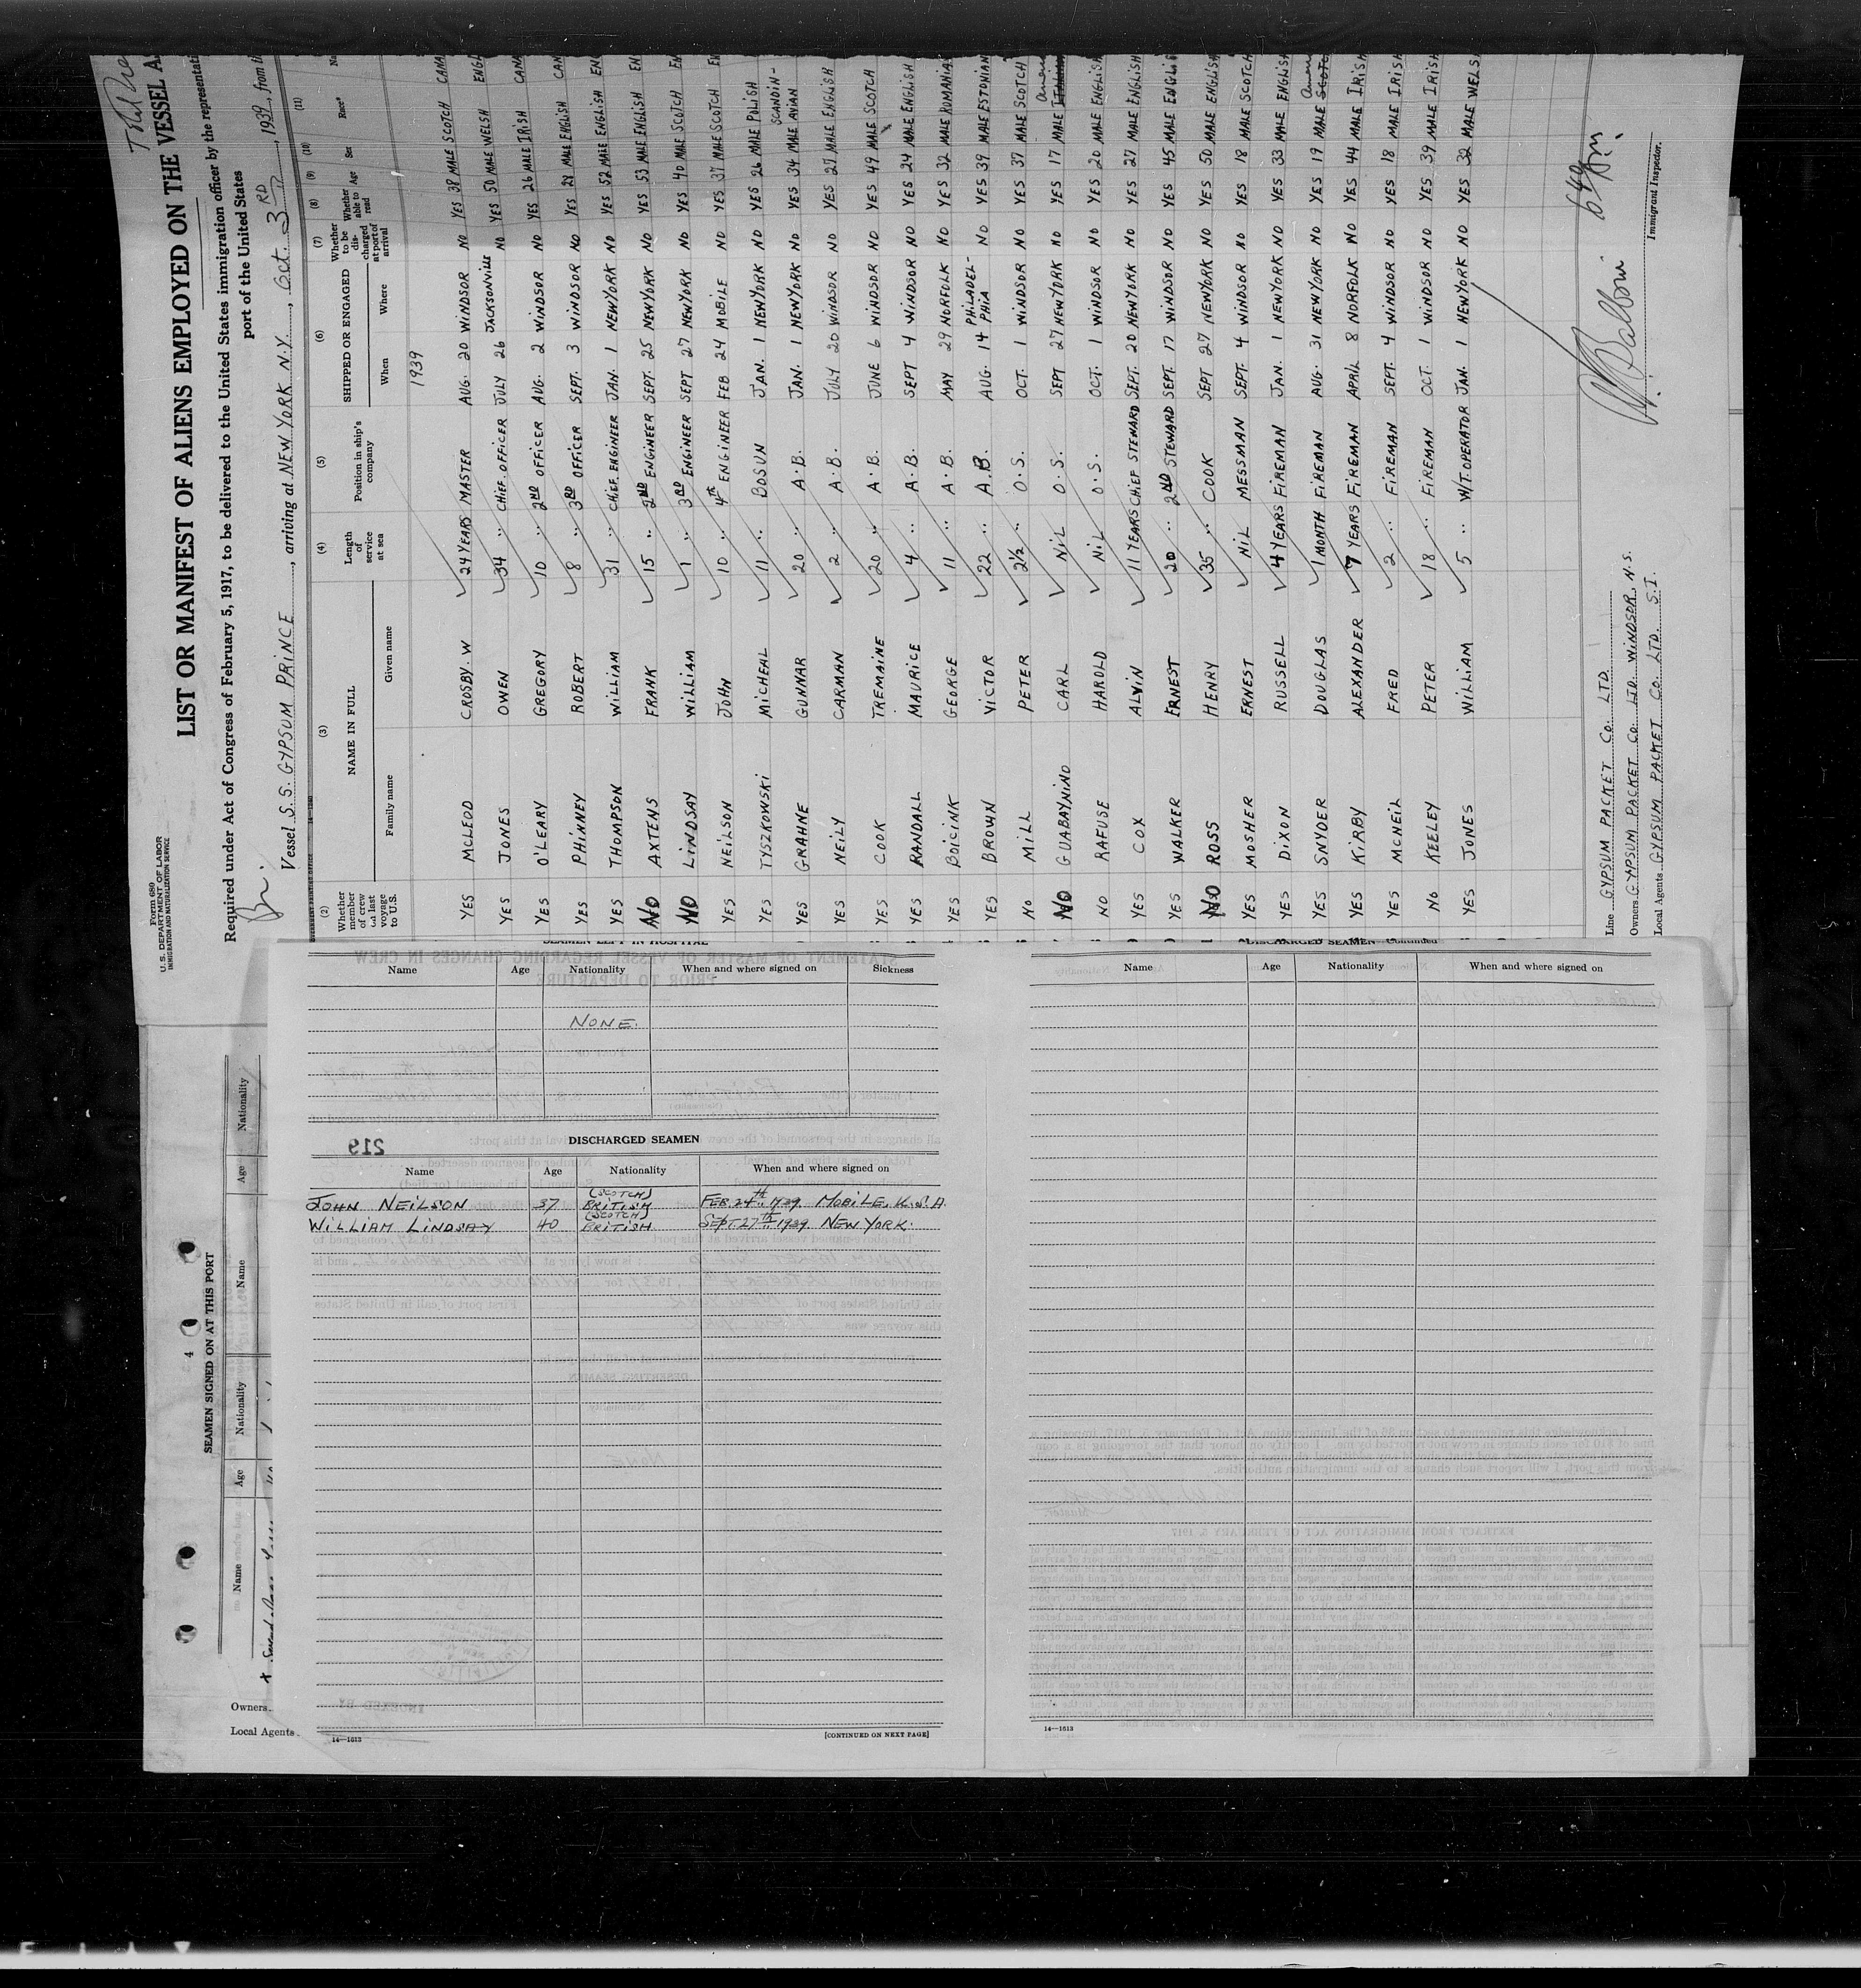 Form 680
U.S. DEPARTMENT OF LABOR
IMMIGRATION AND NATURALIZATION SERVICE
LIST OR MANIFEST OF ALIENS EMPLOYED ON THE VESSEL A
Required under Act of Congress of February 5, 1917, to be delivered to the United States immigration officer by the representati
port of the United States
Vessel S.S. GYPSUM PRINCE, arriving at NEW YORK N.Y., Oct. 3RD, 1939, from th
(2) (3) (4) (5) (6) (7) (8) (9) (10) (11)
Whether member of crew last voyage to U.S. NAME IN FULL Family name Given name Length of service at sea Position in ship's company SHIPPED OR ENGAGED When Where Whether to be discharged at port of arrival Whether able to read Age Sex Race* Na
1939
YES MCLEOD CROSBY. W 24 YEARS MASTER AUG. 20 WINDSOR NO YES 38 MALE SCOTCH CANA
YES JONES OWEN 34 .. CHIEF. OFFICER JULY 26 JACKSONVILLE NO YES 50 MALE WELSH ENGL
YES O'LEARY GREGORY 10 .. 2ND OFFICER AUG. 2 WINDSOR NO YES 26 MALE IRISH CANA
YES PHINNEY ROBERT 8 .. 3RD OFFICER SEPT. 3 WINDSOR NO YES 28 MALE ENGLISH CAN
YES THOMPSON WILLIAM 31 .. CHIEF. ENGINEER JAN. 1 NEW YORK NO YES 52 MALE ENGLISH EN
NO AXTENS FRANK 15 .. 2ND ENGINEER SEPT. 25 NEW YORK NO YES 53 MALE ENGLISH EN
NO LINDSAY WILLIAM 1 .. 3RD ENGINEER SEPT 27 NEW YORK NO YES 40 MALE SCOTCH EN
YES NEILSON JOHN 10 .. 4TH ENGINEER FEB 24 MOBILE NO YES 37 MALE SCOTCH EN
YES TYSZKOWSKI MICHEAL 11 .. BOSUN JAN. 1 NEW YORK NO YES 26 MALE POLISH
YES GRAHNE GUNNAR 20 .. A.B. JAN. 1 NEW YORK NO YES 34 MALE SCANDIN-AVIAN
YES NEILY CARMAN 2 .. A.B. JULY 20 WINDSOR NO YES 27 MALE ENGLISH
YES COOK TREMAINE 20 .. A.B. JUNE 6 WINDSOR NO YES 49 MALE SCOTCH
YES RANDALL MAURICE 4 .. A.B. SEPT 4 WINDSOR NO YES 24 MALE ENGLISH
YES BOICINK GEORGE 11 .. A.B. MAY 29 NORFOLK NO YES 32 MALE ROMANIA
YES BROWN VICTOR 22 .. A.B. AUG. 14 PHILADEL-PHIA NO YES 39 MALE ESTONIAN
NO MILL PETER 2½ .. O.S. OCT. 1 WINDSOR NO YES 37 MALE SCOTCH
NO GUABAYNIND CARL NIL O.S. SEPT 27 NEW YORK NO YES 17 MALE
NO RAFUSE HAROLD NIL O.S. OCT. 1 WINDSOR NO YES 20 MALE ENGLISH
YES COX ALVIN 11 YEARS CHIEF STEWARD SEPT. 20 NEW YORK NO YES 27 MALE ENGLISH
YES WALKER ERNEST 20 .. 2ND STEWARD SEPT. 17 WINDSOR NO YES 45 MALE ENGLIS
NO ROSS HENRY 35 .. COOK SEPT 27 NEW YORK NO YES 50 MALE ENGLISH
YES MOSHER ERNEST NIL MESSMAN SEPT. 4 WINDSOR NO YES 18 MALE SCOTCH
YES DIXON RUSSELL 4 YEARS FIREMAN JAN. 1 NEW YORK NO YES 33 MALE ENGLISH
YES SNYDER DOUGLAS 1 MONTH FIREMAN AUG. 31 NEW YORK NO YES 19 MALE SCOTC
YES KIRBY ALEXANDER 7 YEARS FIREMAN APRIL 8 NORFOLK NO YES 44 MALE IRISH
YES MCNEIL FRED 2 .. FIREMAN SEPT. 4 WINDSOR NO YES 18 MALE IRISH
NO KEELEY PETER 18 .. FIREMAN OCT. 1 WINDSOR NO YES 39 MALE IRISH
YES JONES WILLIAM 5 .. W/T. OPERATOR JAN. 1 NEW YORK NO YES 32 MALE WELSH
Line GYPSUM PACKET Co. LTD.
Owners GYPSUM PACKET Co LTD. WINDSOR, N.S.
Local Agents GYPSUM PACKET Co. LTD. S.I.
Immigrant Inspector.
SEAMEN LEFT IN HOSPITAL
Name Age Nationality When and where signed on Sickness
NONE.
219
DISCHARGED SEAMEN
Name Age Nationality When and where signed on
JOHN NEILSON 37 (SCOTCH) BRITISH FEB. 24th 1939. MOBILE. U.S.A.
WILLIAM LINDSAY 40 (SCOTCH) BRITISH SEPT. 27th 1939. NEW YORK.
14—1613
[CONTINUED ON NEXT PAGE]
DISCHARGED SEAMEN—Continued
Name Age Nationality When and where signed on
14—1613
4
SEAMEN SIGNED ON AT THIS PORT
Name Age Nationality Name Age Nationality
Owners
Local Agents